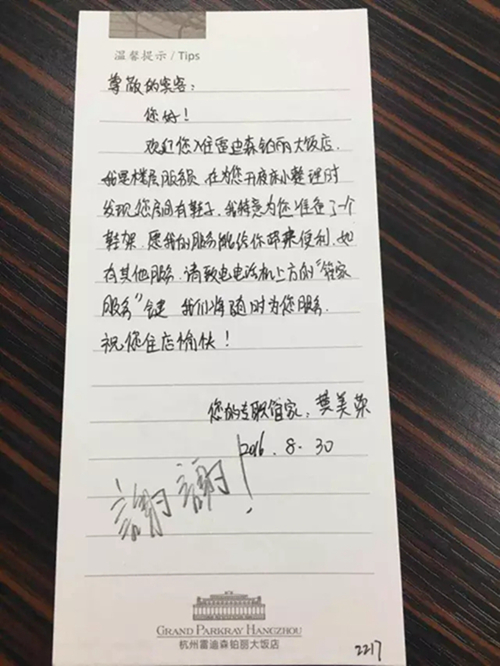 温馨提示 / Tips
尊敬的宾客：
您好！
欢迎您入住雷迪森铂丽大饭店，
我是楼层服务员，在为您开夜床小整理时
发现您房间有鞋子，我特意为您准备了一个
鞋架，愿我的服务能给你带来便利，如
有其他服务，请致电电话机上方的“管家
服务”键，我们将随时为您服务。
祝您住店愉快！
您的专职管家：黄美荣
2016.8.30
謝謝！
GRAND PARKRAY HANGZHOU
杭州雷迪森铂丽大饭店
2217